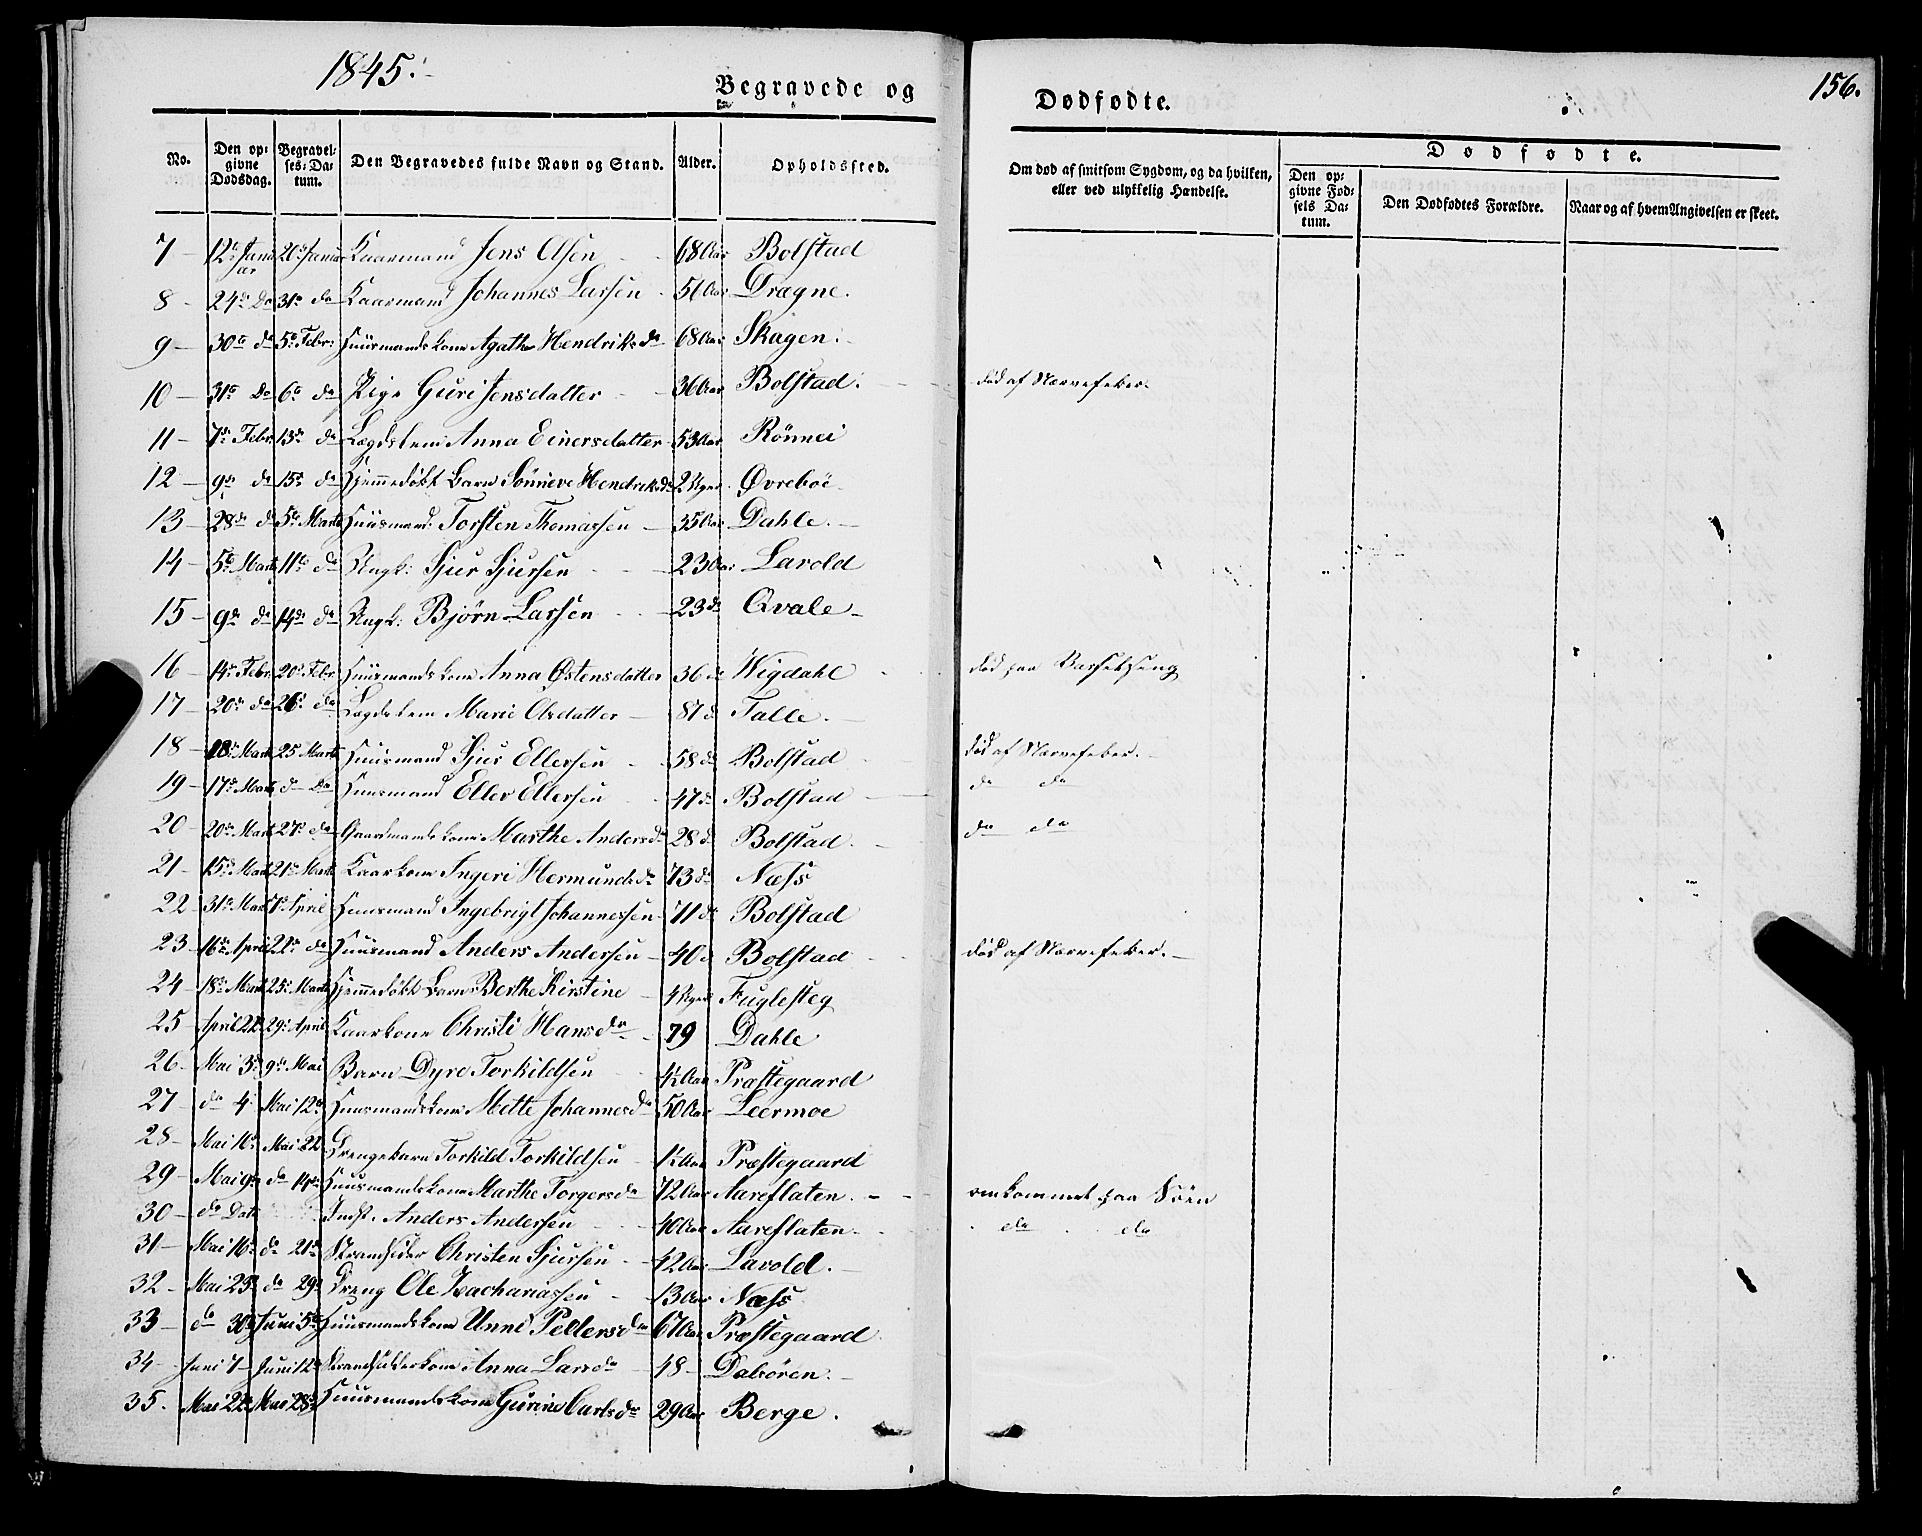 1845.
Begravede og
Dødfødte.
156.
No. Den opgivne Dødsdag. Begravelses-Datum. Den Begravedes fulde Navn og Stand. Alder. Opholdssted. Om død af smitsom Sygdom, og da hvilken, eller ved ulykkelig Hændelse. Dødfødte. Den opgivne Fødsels Datum. Den Dødfødtes Forældre. Naar og af hvem Angivelsen er skeet.
7 12 Januar 20 Januar Kaarmand Jens Olsen 68 Aar Bolstad
8 24 do 31 do Kaarmand Johannes Larsen Aar Dragne.
9 30 do 5 Febr: Huusmandskone Agathe Hendriksdr 68 Aar Skagen.
10 31 do 6 do Pige Guri Jensdatter 36 Aar Bolstad. død af Nervefeber.
11 7 Febr 13 do Lægdslem Anna Einersdatter 53 Aar Rönnei
12 9 do 15 do Hjemmedøbt Barn Sönneve Hendriksdr 2 Uger Øvrebøe
13 28 do 5 Marts Huusmand Torsten Thomassen 35 Aar Dahle.
14 5 Marts 11 do Ungk: Sjur Sjursen 23 Aar Lavold
15 9 do 14 do Ungk: Bjørn Larsen 23 do Qvale
16 14 Febr 20 Febr Huusmandskone Anna Østensdatter 36 do Wigdahl død paa Barselseng
17 20 do 26 do Lægdslem Marie Olsdatter 87 d Talle.
18 18 Marts 25 Marts Huusmand Sjur Ellersen 58 do Bolstad død af Nervefeber.
19 17 Marts d do Huusmand Eller Ellersen 47 do Bolstad do do
20 20 Marts 27 do Gaardmandskone Marthe Andersdr 28 d Bolstad. do do
21 15 Marts 21 Marts Kaarkone Ingeri Hermundsdr 73 do Næss
22 31 Marts 7 April Huusmand Ingebrigt Johannessen 71 do Bolstad
23 16 April 22 do Huusmand Anders Andersen 40 d Bolstad død af Nervefeber.
24 18 Marts 25 Marts Hjemmedøbt Barn Berthe Kirstine 4 Uger Fuglesteg
25 April 22 29 April Kaarkone Christi Hansdr 79 Dahle
26 Mai 3 9 Mai Barn Dyre Torkildsen 4½ Aar Præstegaard
27 do 4 Mai 12 Huusmandskone Mette Johannesdr 50 Aar Leermoe
28 Mai 16 Mai 22 Drengebarn Torkild Torkildsen 1½ Aar Præstegaard
29 Mai 9 do 14 Huusmandskone Marthe Torgersdr 72 Aar Aareflaten. omkommet paa Söen
30 do Dato Inds. Anders Andersen 40 Aar Aareflaten. do do
31 Mai 16 do 21 Strandsidder Christen Sjursen 42 Aar Lavold.
32 Mai 23 do 29 Dreng Ole Zachariassen 13 Aar Næss
33 do 30 Juni 5 Huusmandskone Unni Pettersdr 67 Aar Præstegaard
34 Juni 7 Juni 12 Strandsidderkone Anna Larsdr 48 Dalsören.
35. Mai 22 Mai 28 Huusmandskone Gurine Carlsdr 29 Aar Berge.